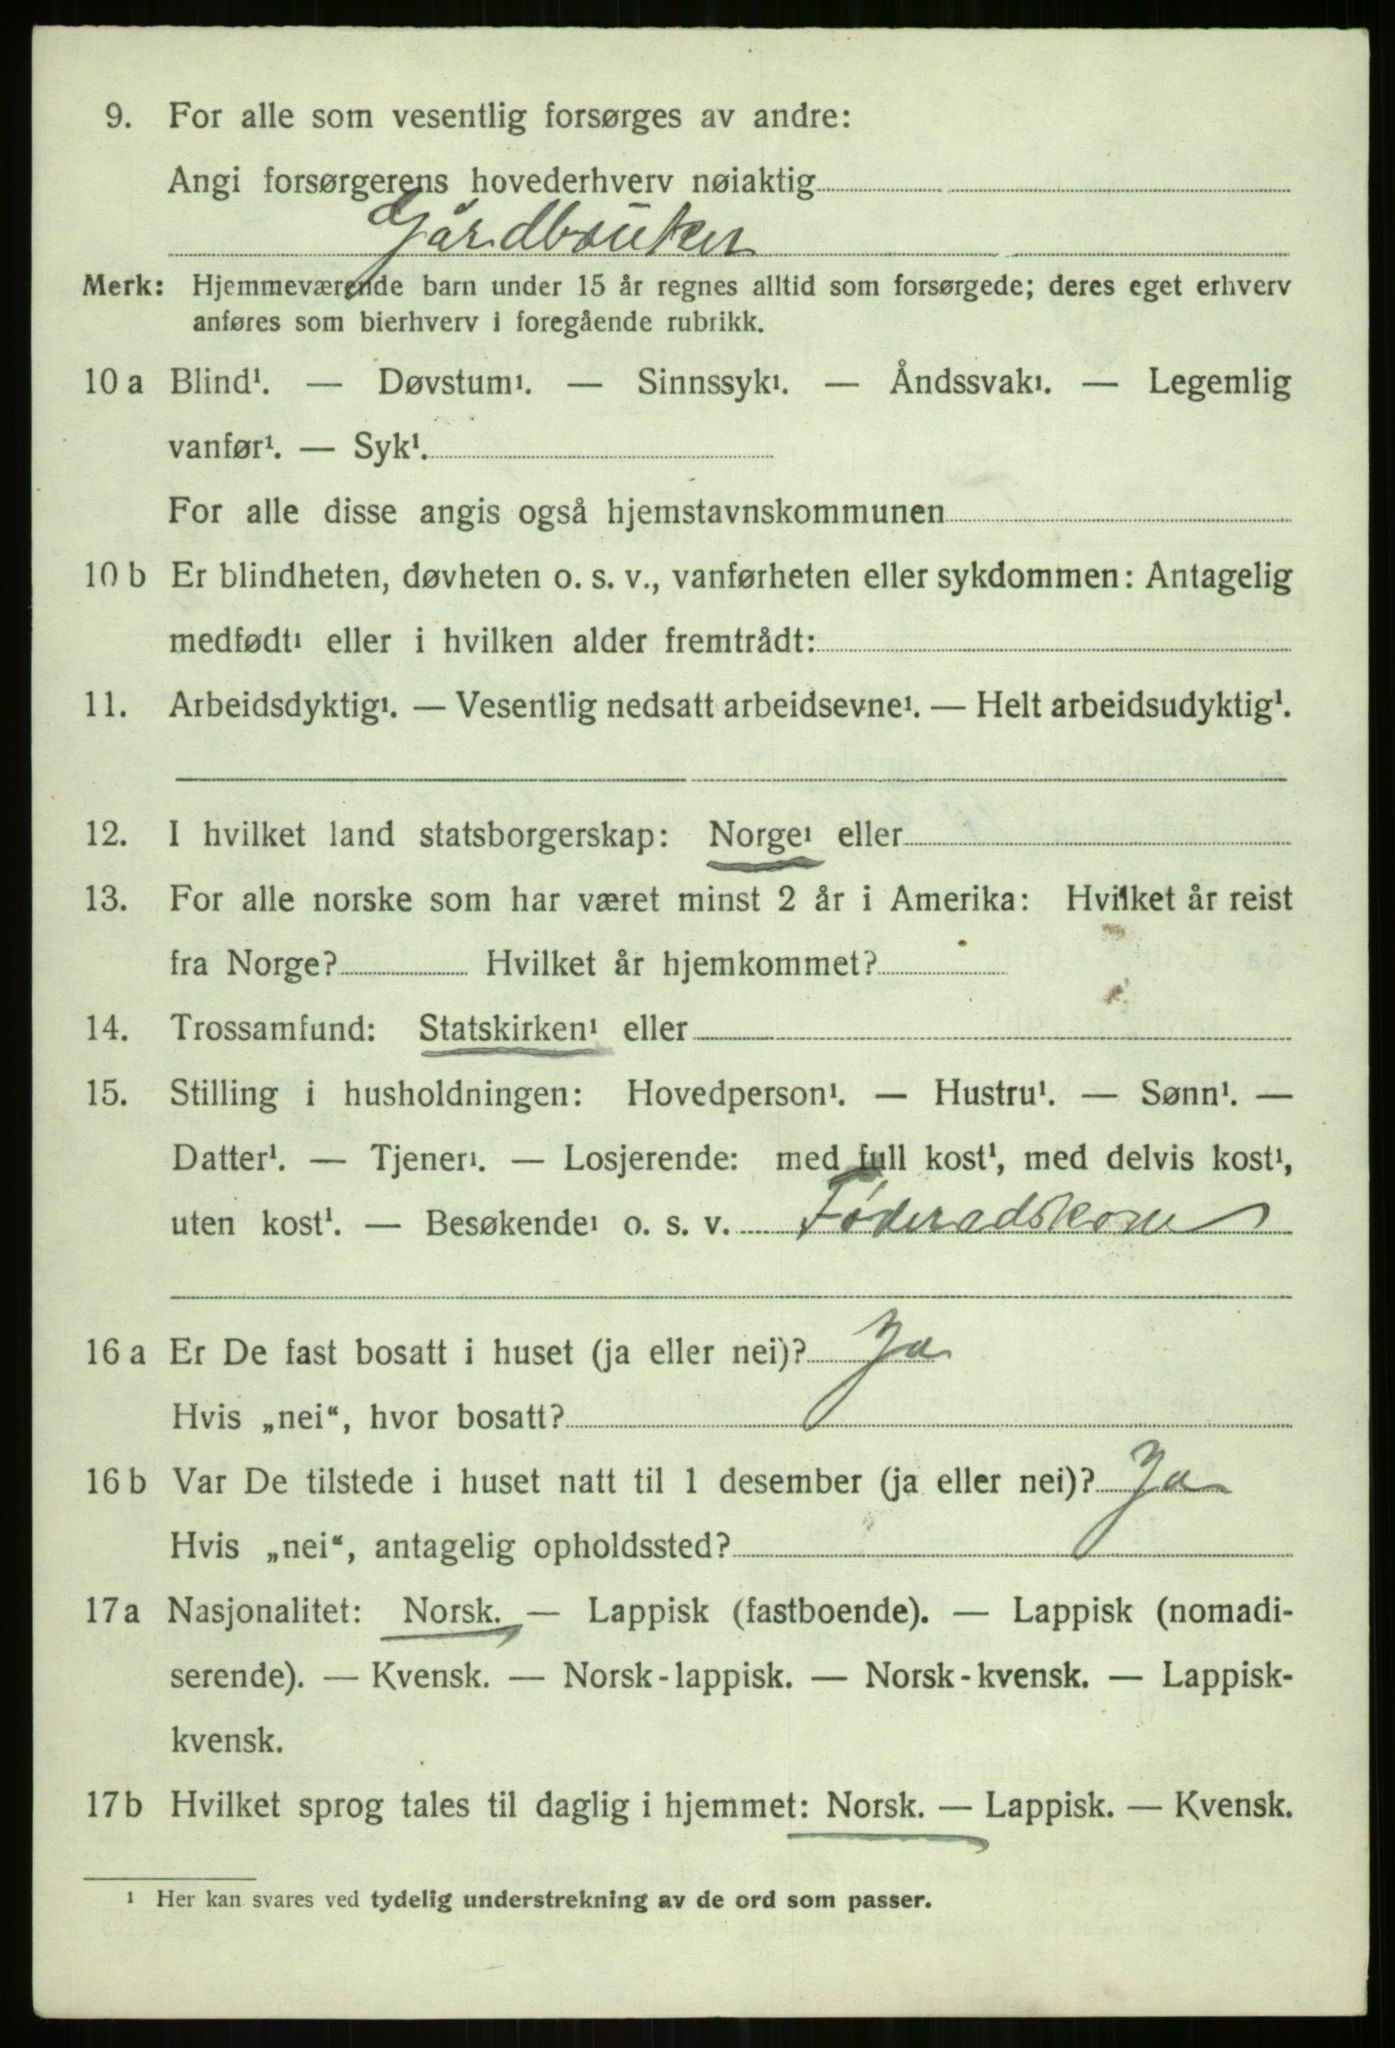 9. For alle som vesentlig forsørges av andre:
Angi forsørgerens hovederhverv nøiaktig
Gårdbruker
Merk: Hjemmeværende barn under 15 år regnes alltid som forsørgede; deres eget erhverv
anføres som bierhverv i foregående rubrikk.
10 a Blind¹. — Døvstum¹. — Sinnssyk¹. — Åndssvak¹. — Legemlig
vanfør¹. — Syk¹.
For alle disse angis også hjemstavnskommunen
10 b Er blindheten, døvheten o. s. v., vanførheten eller sykdommen: Antagelig
medfødt¹ eller i hvilken alder fremtrådt:
11. Arbeidsdyktig¹. — Vesentlig nedsatt arbeidsevne¹. — Helt arbeidsudyktig¹.
12. I hvilket land statsborgerskap: Norge¹ eller
13. For alle norske som har været minst 2 år i Amerika: Hvilket år reist
fra Norge? Hvilket år hjemkommet?
14. Trossamfund: Statskirken¹ eller
15. Stilling i husholdningen: Hovedperson¹. — Hustru¹. — Sønn¹. —
Datter¹. — Tjener¹. — Losjerende: med full kost¹, med delvis kost¹,
uten kost¹. — Besøkende¹ o. s. v. Føderadskone
16 a Er De fast bosatt i huset (ja eller nei)? Ja
Hvis „nei“, hvor bosatt?
16 b Var De tilstede i huset natt til 1 desember (ja eller nei)? Ja
Hvis „nei“, antagelig opholdssted?
17 a Nasjonalitet: Norsk. — Lappisk (fastboende). — Lappisk (nomadi-
serende). — Kvensk. — Norsk-lappisk. — Norsk-kvensk. — Lappisk-
kvensk.
17 b Hvilket sprog tales til daglig i hjemmet: Norsk. — Lappisk. — Kvensk.
¹ Her kan svares ved tydelig understrekning av de ord som passer.